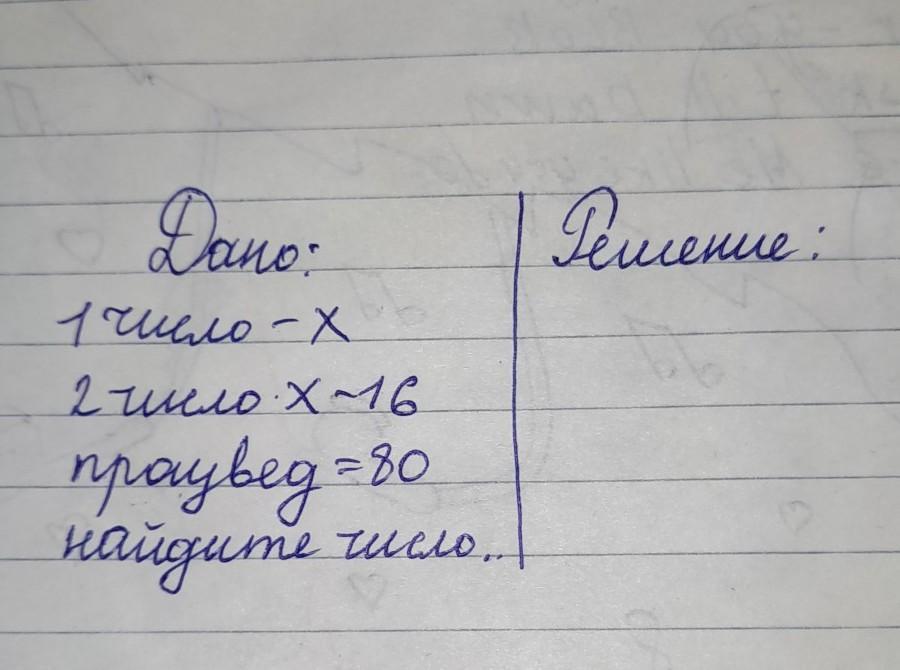 Дано: Решение:
1 число - х
2 число · х - 16
произвед = 80
найдите число..